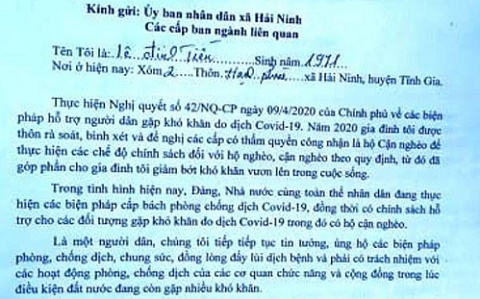 Kính gửi: Ủy ban nhân dân xã Hải Ninh
Các cấp ban ngành liên quan
Tên Tôi là: Lê Đình Tiên Sinh năm 1971
Nơi ở hiện nay: Xóm 2 Thôn, xã Hải Ninh, huyện Tĩnh Gia.
Thực hiện Nghị quyết số 42/NQ-CP ngày 09/4/2020 của Chính phủ về các biện
pháp hỗ trợ người dân gặp khó khăn do dịch Covid-19. Năm 2020 gia đình tôi được
thôn rà soát, bình xét và đề nghị các cấp có thẩm quyền công nhận là hộ Cận nghèo để
thực hiện các chế độ chính sách đối với hộ nghèo, cận nghèo theo quy định, từ đó đã
góp phần cho gia đình tôi giảm bớt khó khăn vươn lên trong cuộc sống.
Trong tình hình hiện nay, Đảng, Nhà nước cùng toàn thể nhân dân đang thực
hiện các biện pháp cấp bách phòng chống dịch Covid-19, đồng thời có chính sách hỗ
trợ cho các đối tượng gặp khó khăn do dịch Covid-19 trong đó có hộ cận nghèo.
Là một người dân, chúng tôi tiếp tiếp tục tin tưởng, ủng hộ các biện pháp
phòng, chống dịch, chung sức, đồng lòng đẩy lùi dịch bệnh và phải có trách nhiệm với
các hoạt động phòng, chống dịch của các cơ quan chức năng và cộng đồng trong lúc
điều kiện đất nước đang còn gặp nhiều khó khăn.